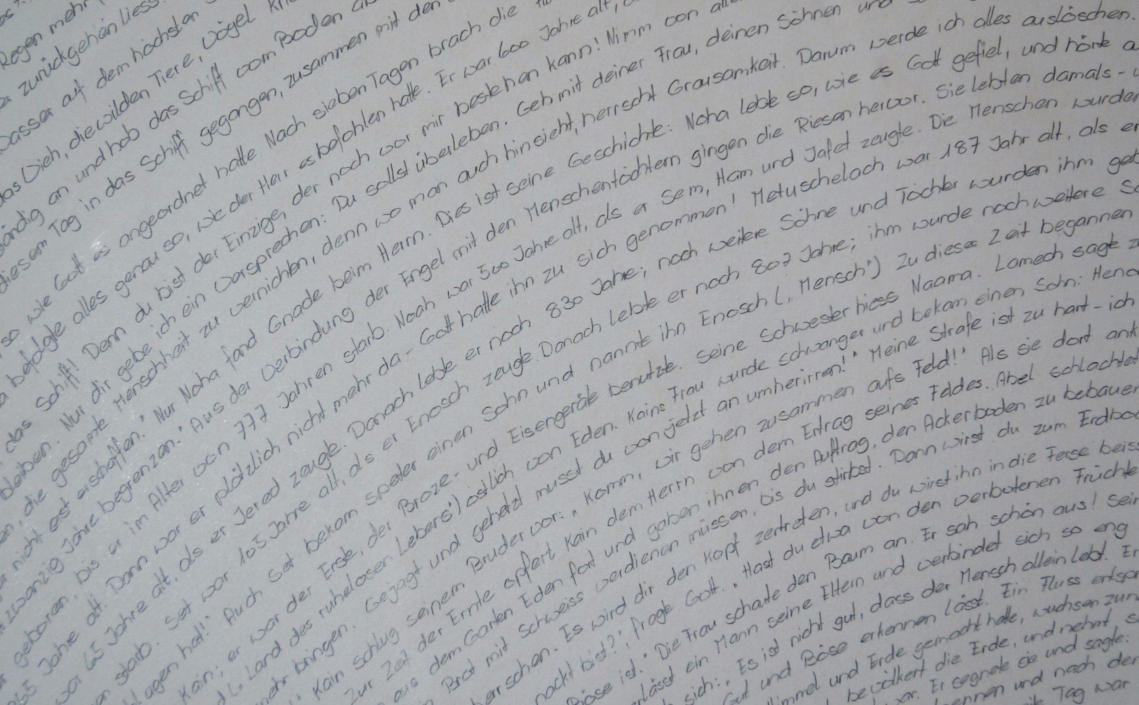 Regen mehr
zurückgehen liess.
Wasser auf dem höchsten
das Vieh, die wilden Tiere, Vögel
ständig an und hob das Schiff vom Boden
diesem Tag in das Schiff gegangen, zusammen mit den
so wie Gott es angeordnet hatte Nach sieben Tagen brach die
befolgte alles genau so, wie der Herr es befohlen hatte. Er war 600 Jahre alt,
das Schiff! Denn du bist der Einzige, der noch vor mir bestehen kann! Nimm von
bleiben. Nur dir gebe ich ein Versprechen: Du sollst überleben. Geh mit deiner Frau, deinen Söhnen und
die gesamte Menschheit zu vernichten, denn wo man auch hinsieht, herrscht Grausamkeit. Darum werde ich alles auslöschen.
nicht erst erschaffen." Nur Noha fand Gnade beim Herrn. Dies ist seine Geschichte: Noha lebte so, wie es Gott gefiel, und hörte
zwanzig Jahre begrenzen." Aus der Verbindung der Engel mit den Menschentöchtern gingen die Riesen hervor. Sie lebten damals -
geboren, bis er im Alter von 777 Jahren starb. Noah war 500 Jahre alt, als er Sem, Ham und Jafet zeugte. Die Menschen wurden
365 Jahre alt. Dann war er plötzlich nicht mehr da - Gott hatte ihn zu sich genommen! Metuschelach war 187 Jahr alt, als er
war 65 Jahre alt, als er Jered zeugte. Danach lebte er noch 830 Jahre; noch weitere Söhne und Töchter wurden ihm geb
starb. Set war 105 Jahre alt, als er Enosch zeugte. Danach lebte er noch 807 Jahre; ihm wurde noch weitere
hat!" Auch Set bekam später einen Sohn und nannte ihn Enosch („Mensch") Zu dieser Zeit begannen
Kain; er war der Erste, der Broze- und Eisengeräte benutzte. Seine Schwester hiess Naama. Lamech sagte
Land des ruhelosen Lebens") östlich von Eden. Kains Frau wurde schwanger und bekam einen Sohn: Heno
mehr bringen. Gejagt und gehetzt musst du von jetzt an umherirren!" „Meine Strafe ist zu hart - ich
Kain schlug seinem Bruder vor: „Komm, wir gehen zusammen aufs Feld!" Als sie dort ank
Zur Zeit der Ernte opfert Kain dem Herrn von dem Ertrag seines Feldes. Abel schlachtet
aus dem Garten Eden fort und gaben ihnen den Auftrag, den Ackerboden zu bebauen
Brot mit Schweiss verdienen müssen, bis du stirbst. Dann wirst du zum Erdbod
herrschen. Es wird dir den Kopf zertreten, und du wirst ihn in die Ferse beis
nackt bist?", fragte Gott. „Hast du etwa von den verbotenen Früchte
Böse ist." Die Frau schaute den Baum an. Er sah schön aus!
verlässt ein Mann seine Eltern und verbindet sich so eng
sich: „Es ist nicht gut, dass der Mensch allein lebt. Er
Gut und Böse erkennen lässt. Ein Fluss entspr
Himmel und Erde gemacht hatte, wuchsen zun
bevölkert die Erde, und nehmt
war. Er segnete sie und sagte:
nennen und nach der
Tag war